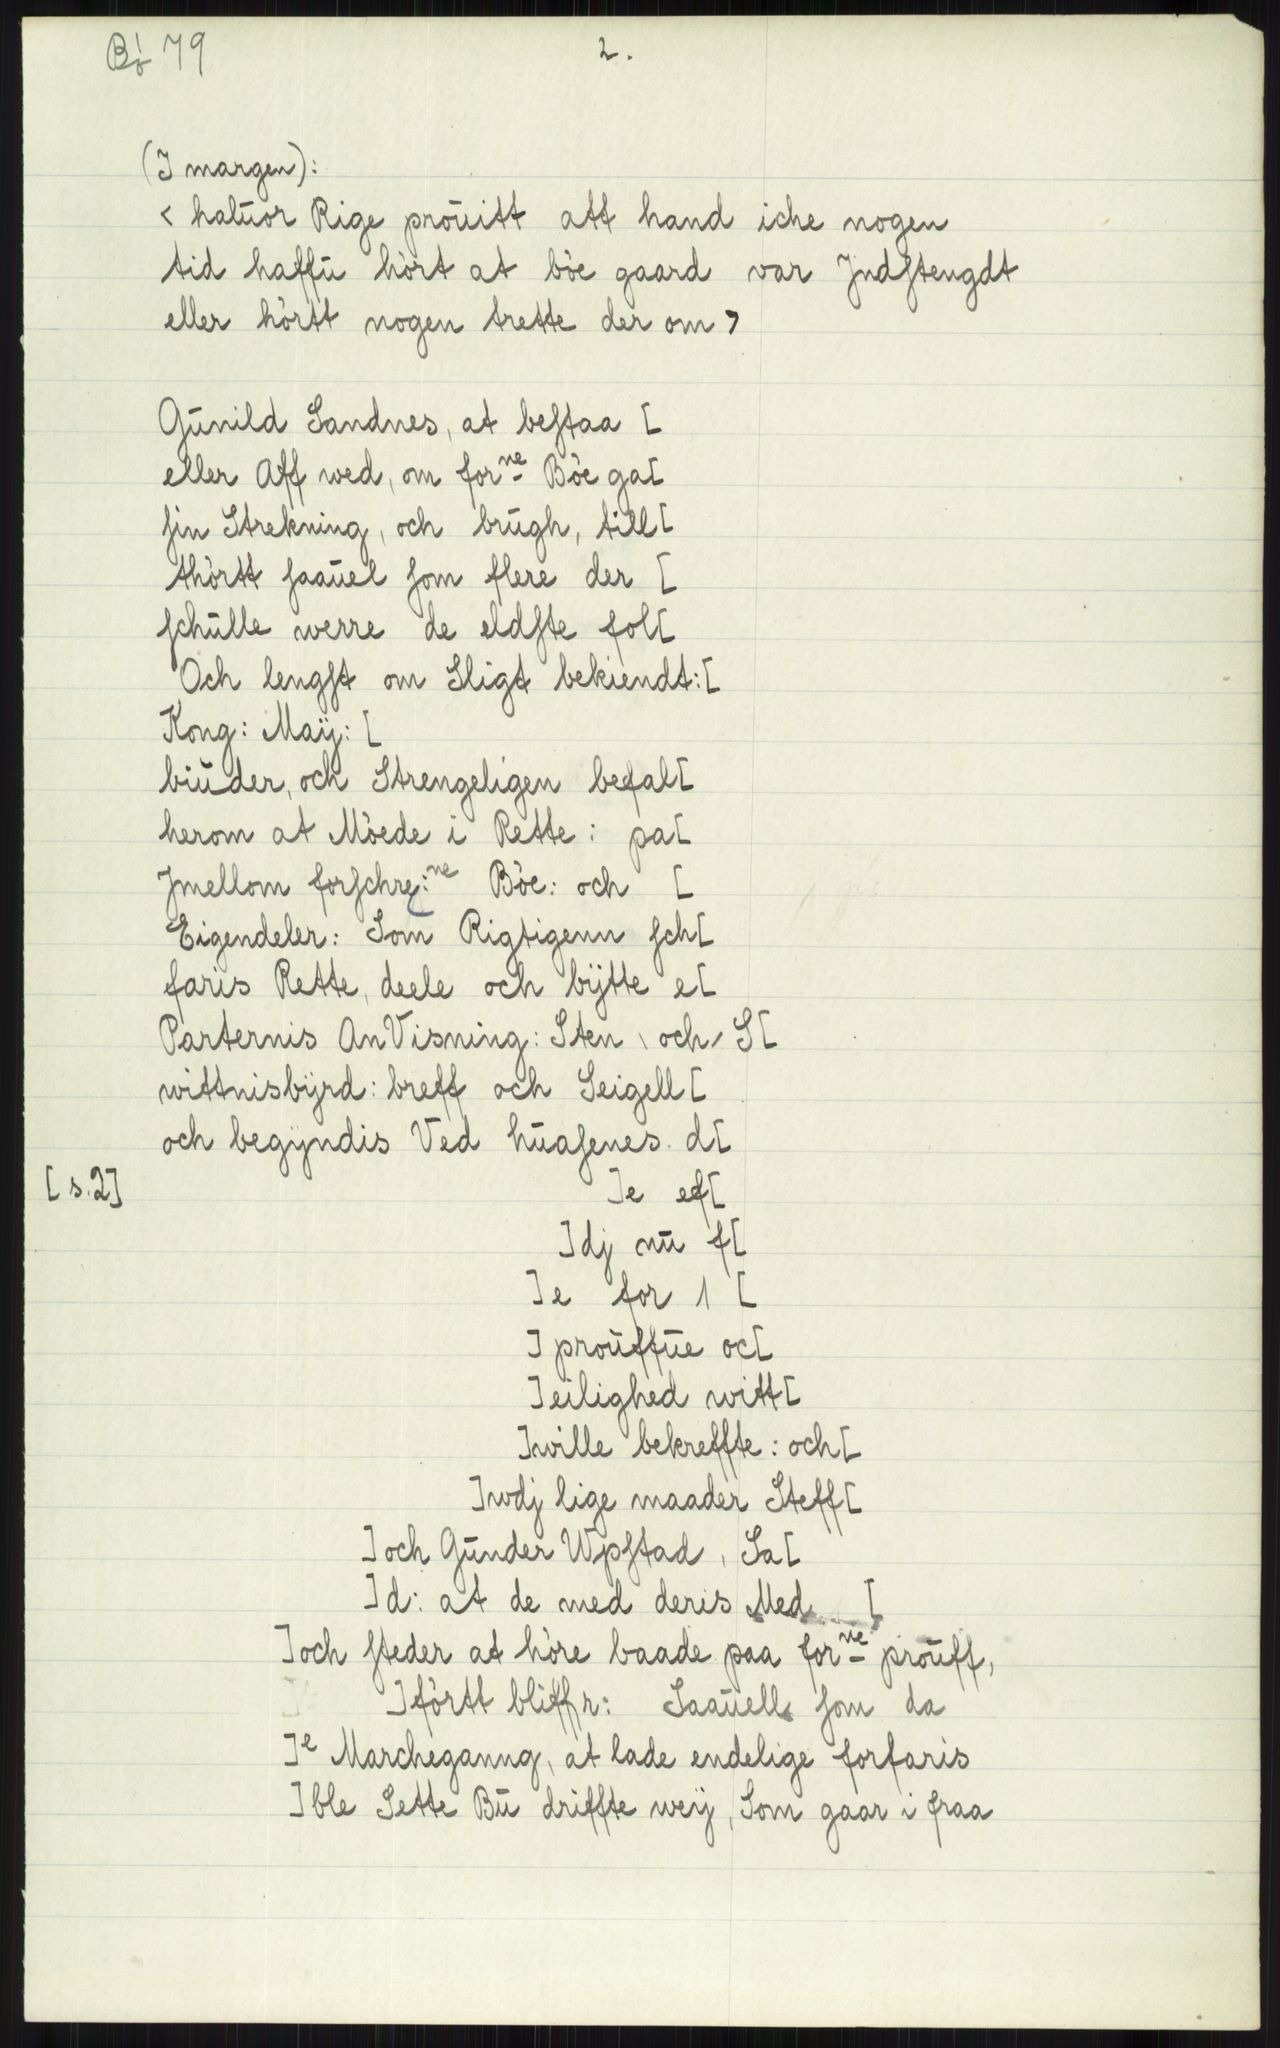 Bø 79
2.
(I margen):
< haluor Rige prouitt att hand iche nogen
tid haffu hört at böe gaard var Jndstengdt
eller hörtt nogen trette der om >
Gunild Sandnes, at bestaa [
eller Aff wed, om forne Böe ga[
sin Strekning, och brugh, till[
thörtt saauel som flere der [
schulle werre de eldste fol[
Och lengst om Sligt bekiendt:[
Kong: Maÿ: [
biuder, och Strengeligen befal[
herom at Möede i Rette: pa[
Jmellom forschre:ne Böe: och [
Eigendeler: Som Rigtigenn sch[
faris Rette, deele och bÿtte e[
Parternis AnVisning: Sten \ och / S[
wittnisbÿrd: breff och Seigell[
och begÿndis Ved huasenes d[
[s.2] ]e ef[
]dj nu f[
]e for / [
] prouffue oc[
]eilighed witt[
]wille bekreffte: och[
]wdj lige maader Steff[
]och Gunder Wpstad, Sa[
]d: at de med deris Med [
]och steder at höre baade paa forne prouff,
]förtt bliffr: Saauell som da
]e Marcheganng, at lade endelige forfaris
]ble Sette Bu driffte weÿ, Som gaar i fraa